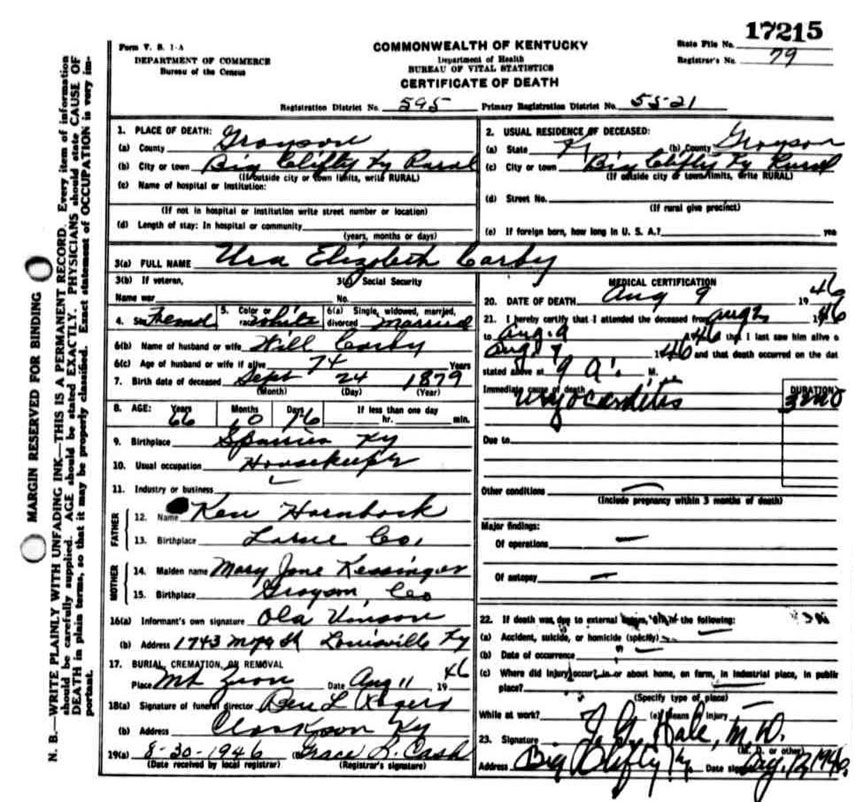 17215
Form V. S. 1-A
DEPARTMENT OF COMMERCE
Bureau of the Census
COMMONWEALTH OF KENTUCKY
Department of Health
BUREAU OF VITAL STATISTICS
CERTIFICATE OF DEATH
State File No.
Registrar's No. 79
Registration District No. 595 Primary Registration District No. 5521
MARGIN RESERVED FOR BINDING
N. B.—WRITE PLAINLY WITH UNFADING INK—THIS IS A PERMANENT RECORD. Every item of information
should be carefully supplied. AGE should be stated EXACTLY. PHYSICIANS should state CAUSE OF
DEATH in plain terms, so that it may be properly classified. Exact statement of OCCUPATION is very im-
portant.
1. PLACE OF DEATH:
(a) County Grayson
(b) City or town Big Clifty Ky Rural
(If outside city or town limits, write RURAL)
(c) Name of hospital or institution:
(If not in hospital or institution write street number or location)
(d) Length of stay: In hospital or community
(years, months or days)
2. USUAL RESIDENCE OF DECEASED:
(a) State Ky (b) County Grayson
(c) City or town Big Clifty Ky Rural
(If outside city or town limits, write RURAL)
(d) Street No.
(If rural give precinct)
(e) If foreign born, how long in U. S. A.? yea
3(a) FULL NAME Ura Elizabeth Carby
3(b) If veteran,
Name war
3(c) Social Security
No.
4. Sex Femal 5. Color or race white 6(a) Single, widowed, married, divorced Married
6(b) Name of husband or wife Will Carby
6(c) Age of husband or wife if alive 74 Years
7. Birth date of deceased Sept 24 1879
(Month) (Day) (Year)
8. AGE: Years 66 Months 10 Days 16 If less than one day
hr. min.
9. Birthplace Ky
10. Usual occupation Housekeeper
11. Industry or business
FATHER
12. Name Ken Hornback
13. Birthplace Larue Co.
MOTHER
14. Maiden name Mary Jane Kessinger
15. Birthplace Grayson Co
16(a) Informant's own signature Ola Vinson
(b) Address 1743 St Louisville Ky
17. BURIAL, CREMATION, OR REMOVAL
Place Mt Zion Date Aug 11 1946
18(a) Signature of funeral director Ben L Rogers
(b) Address Clarkson Ky
19(a) 8-30-1946 (b) Grace L. Cash
(Date received by local registrar) (Registrar's signature)
MEDICAL CERTIFICATION
20. DATE OF DEATH Aug 9 1946
21. I hereby certify that I attended the deceased from Aug 2 1946
to Aug. 9 1946 that I last saw him alive o
Aug 9 1946 and that death occurred on the dat
stated above at 9 A. M.
Immediate cause of death Myocarditis
DURATION
3 mo
Due to
Other conditions
(Include pregnancy within 3 months of death)
Major findings:
Of operations —
Of autopsy —
22. If death was due to external the following:
(a) Accident, suicide, or homicide (specify)
(b) Date of occurrence
(c) Where did injury occur in or about home, on farm, in industrial place, in public
place?
(Specify type of place)
While at work? (e) Means of injury
23. Signature Hale, M.D.
(M. D. or other)
Address Big Clifty Ky. Date signed Aug. 12 1946.